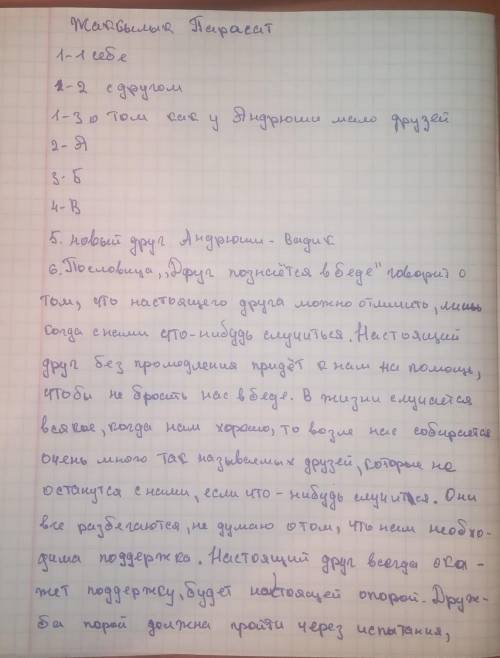 Жаксылык Парасат
1-1 себе
1-2 с другом
1-3 о том как у Андрюши мало друзей
2-А
3-Б
4-В
5. новый друг Андрюши - Вадик
6. Пословица „Друг познаётся в беде" говорит о
том, что настоящего друга можно отличить, лишь
когда с нами что-нибудь случиться. Настоящий
друг без промедления придёт к нам на помощь,
чтобы не бросить нас в беде. В жизни случается
всякое, когда нам хорошо, то возле нас собирается
очень много так называемых друзей, которые не
останутся с нами, если что-нибудь случится. Они
все разбегаются, не думаю о том, что нам необхо-
дима поддержка. Настоящий друг всегда ока-
жет поддержку, будет настоящей опорой. Друж-
ба порой должна пройти через испытания,